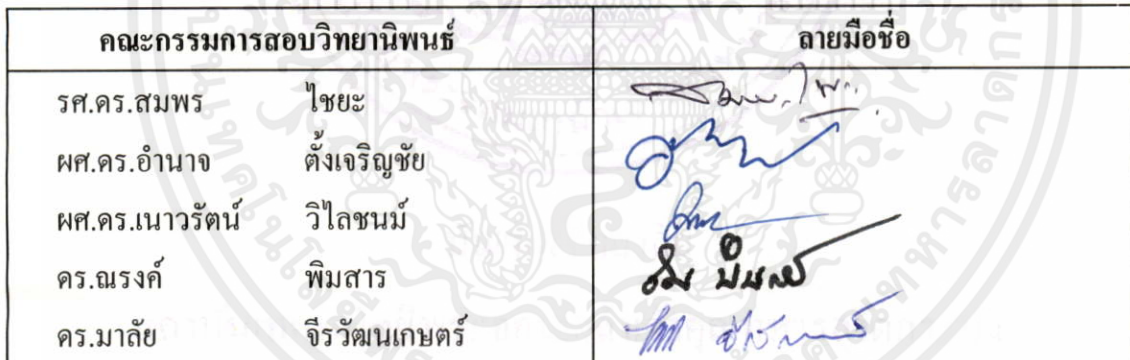 คณะกรรมการสอบวิทยานิพนธ์ ลายมือชื่อ
รศ.ดร.สมพร ไชยะ
ผศ.ดร.อำนาจ ตั้งเจริญชัย
ผศ.ดร.เนาวรัตน์ วิไลชนม์
ดร.ณรงค์ พิมสาร
ดร.มาลัย จีรวัฒนเกษตร์